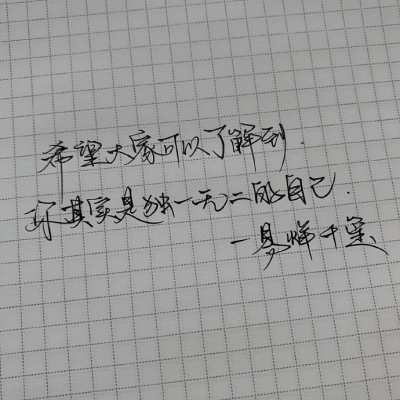 希望大家可以了解到.
其实是独一无二的自己.
一易烊千玺